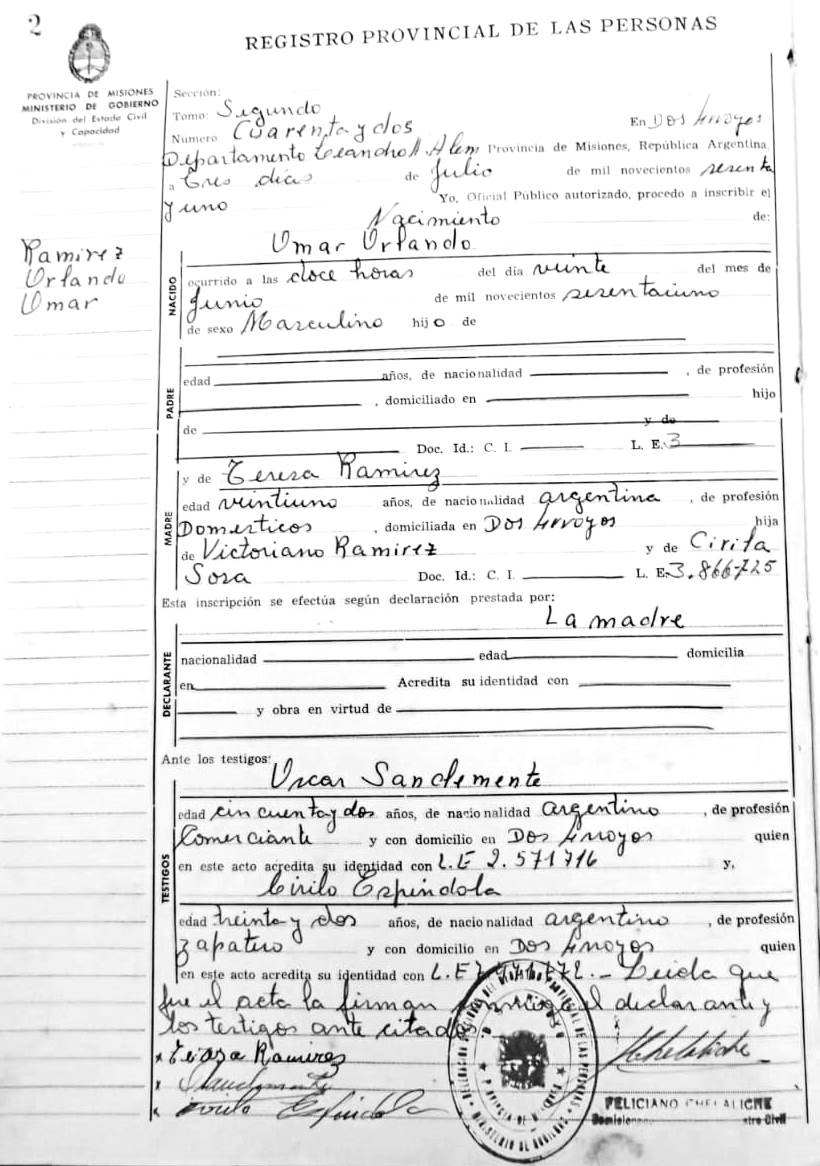 2
REGISTRO PROVINCIAL DE LAS PERSONAS
PROVINCIA DE MISIONES
MINISTERIO DE GOBIERNO
División del Estado Civil
y Capacidad
Sección:
Tomo: Segundo
Numero Cuarenta y dos En Dos Arroyos
Departamento Leandro N. Alem Provincia de Misiones, República Argentina
a Tres días de Julio de mil novecientos sesenta
y uno Yo, Oficial Público autorizado, procedo a inscribir el
Nacimiento de:
Omar Orlando
Ramirez
Orlando
Omar
NACIDO
ocurrido a las doce horas del día veinte del mes de
Junio de mil novecientos sesentaiuno
de sexo Masculino hijo de
PADRE
edad años, de nacionalidad , de profesión
, domiciliado en hijo
de y de
Doc. Id.: C. I. L. E. 3
MADRE
y de Teresa Ramirez
edad veintiuno años, de nacionalidad argentina , de profesión
Domesticos , domiciliada en Dos Arroyos hija
de Victoriano Ramirez y de Cirila
Sosa Doc. Id.: C. I. L. E. 3.866.725
Esta inscripción se efectúa según declaración prestada por:
La madre
DECLARANTE
nacionalidad edad domicilia
en Acredita su identidad con
y obra en virtud de
Ante los testigos:
Oscar Sanclemente
TESTIGOS
edad cincuenta y dos años, de nacionalidad argentino , de profesión
Comerciante y con domicilio en Dos Arroyos quien
en este acto acredita su identidad con L.E 2.571716 y,
Cirilo Espindola
edad treinta y dos años, de nacionalidad argentino , de profesión
zapatero y con domicilio en Dos Arroyos quien
en este acto acredita su identidad con L.E - Leida que
fue el acta la firman conmigo el declarante y
los testigos ante citados
x Teresa Ramirez
x Sanclemente
x Cirilo Espindola
FELICIANO CHELALICHE